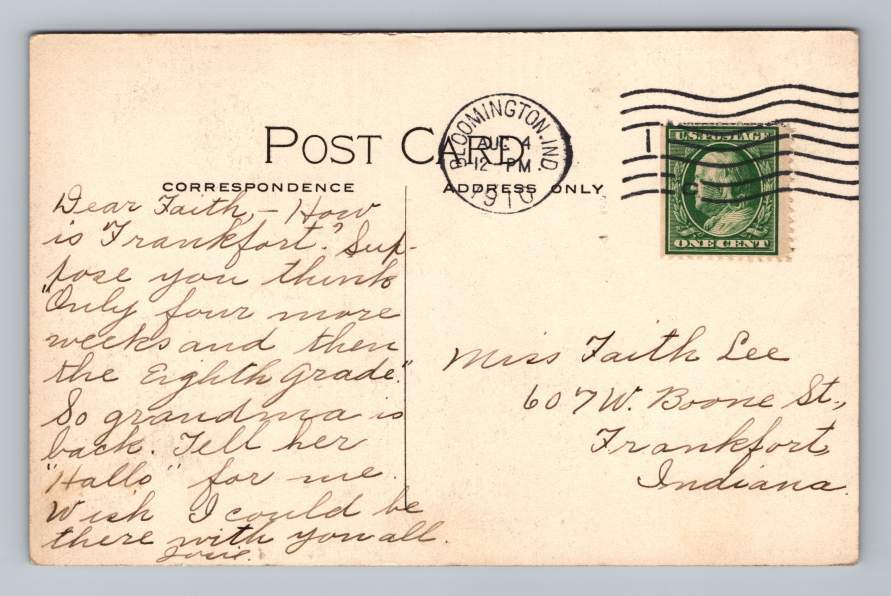 POST CARD
CORRESPONDENCE
ADDRESS ONLY
BLOOMINGTON, IND.
AUG 4
12 PM
1910
U.S. POSTAGE
ONE CENT
Dear Faith, – How
is "Frankfort"? Sup-
pose you think
"Only four more
weeks and then
the Eighth Grade."
So grandma is
back. Tell her
"Hallo" for me.
Wish I could be
there with you all.
Josie.
Miss Faith Lee
607 W. Boone St.,
Frankfort,
Indiana.